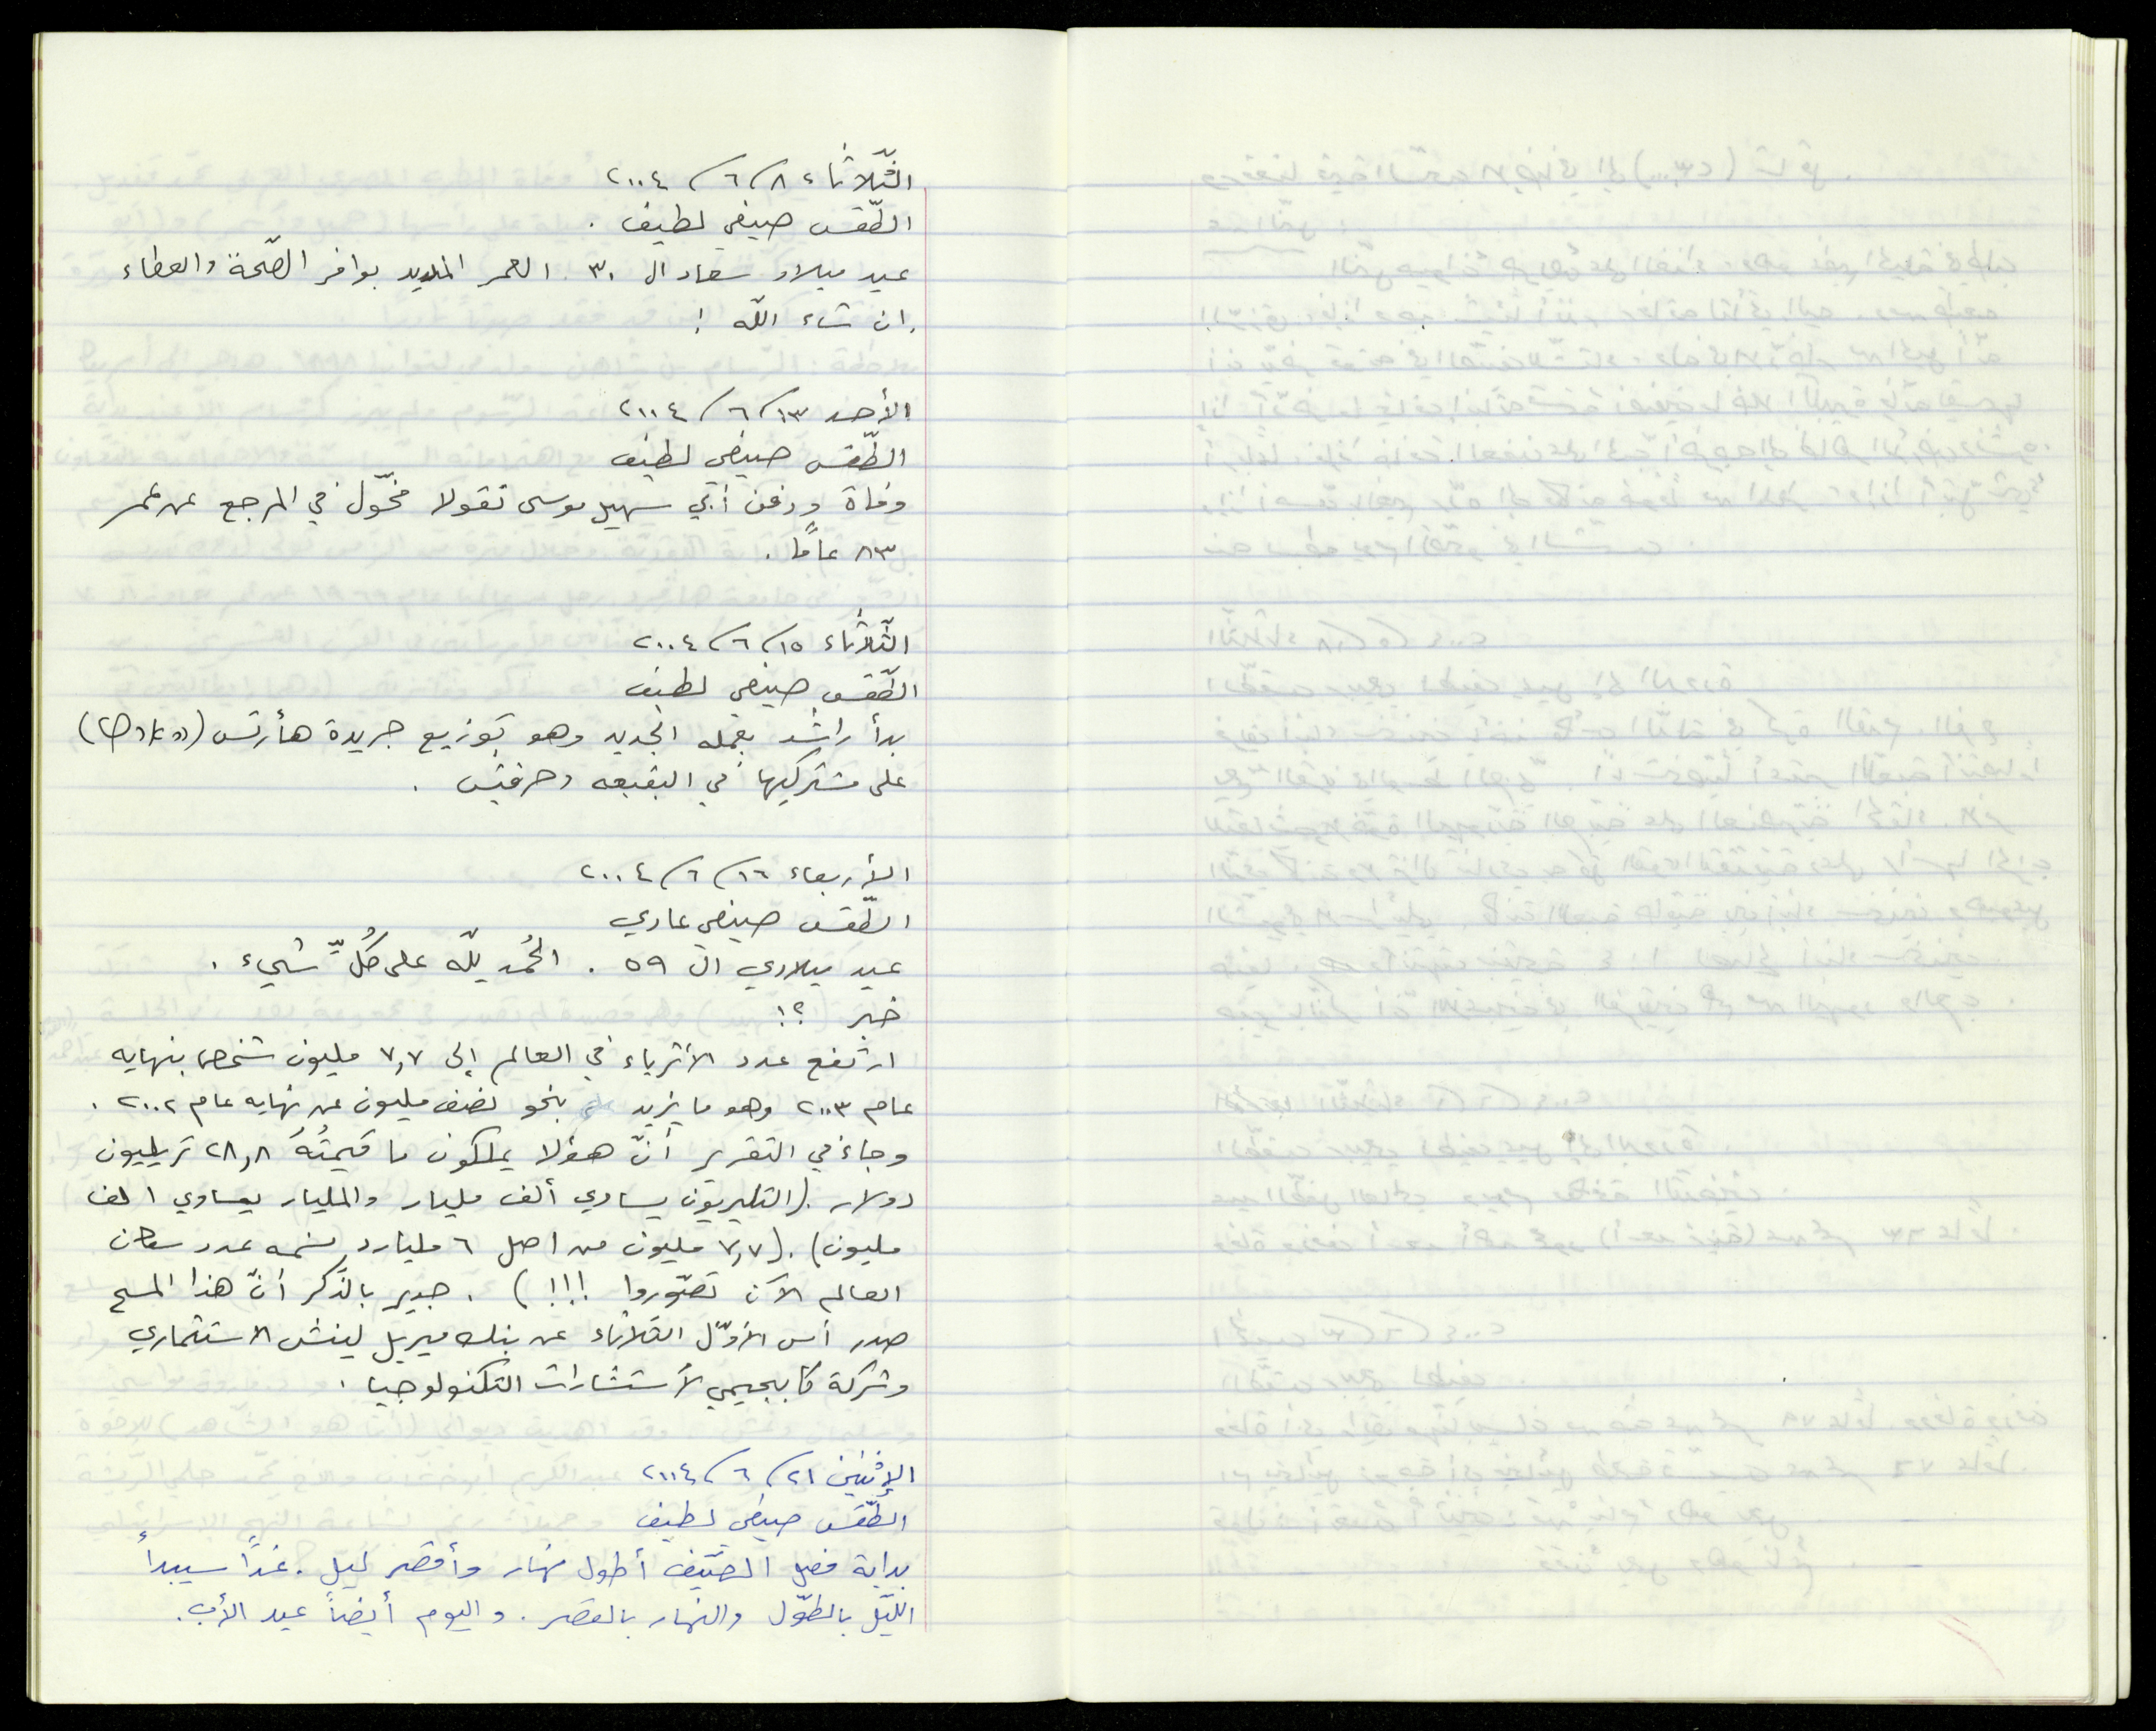 الثّلاثاء ٨/٦/٢٠٠٤
الطّقس صيفي لطيف .
عيد ميلاد سعاد ال ٣٠ . العمر المديد بوافر الصّحة والعطاء
إن شاء اللّه !
الأحد ١٣/٦/٢٠٠٤
الطّقس صيفي لطيف
وفاة ودفن أبي سهيل موسى نقولا مخّول في المرجع عن عمر
٨٣ عامًا .
الثّلاثاء ١٥/٦/٢٠٠٤
الطّقس صيفي لطيف
بدأ راشد بعمله الجديد وهو توزيع جريدة هأرتس (הארץ)
على مشتركيها في البقيعه وحرفيش .
الأربعاء ١٦/٦/٢٠٠٤
الطّقس صيفي عادي
عيد ميلادي ال ٥٩ . الحُمد للّه على كُلِّ شيء .
خبر ؟!
ارتفع عدد الأثرياء في العالم إلى ٧,٧ مليون شخصا بنهايه
عام ٢٠٠٣ وهو ما يزيد بنحو نصف مليون عن نهايه عام ٢٠٠٢ .
وجاء في التقرير أنّ هؤلا يملكون ما قيمتُه ٢٨,٨ تريليون
دولار . (التليريون يساوي ألف مليار والمليار يساوي الف
مليون) . (٧,٧ مليون من اصل ٦ مليارد نسمه عدد سكان
العالم الآن تصّوروا !!!) . جدير بالذّكر أنّ هذا المسح
صدر أمس الأوّل الثلاثاء عن بنك ميريل لينش الاستثماري
وشركة كابجيمي لأستشارات التكنولوجيا .
الإثنين ٢١/٦/٢٠٠٤
الطّقس صيفي لطيف
بداية فصل الصّيف أطول نهار وأقصر ليل . غدًا سيبدأ
اللّيل بالطّول والنهار بالقصر . واليوم أيضاً عيد الأب .